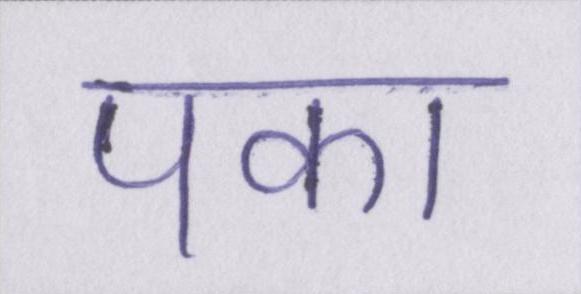 पका